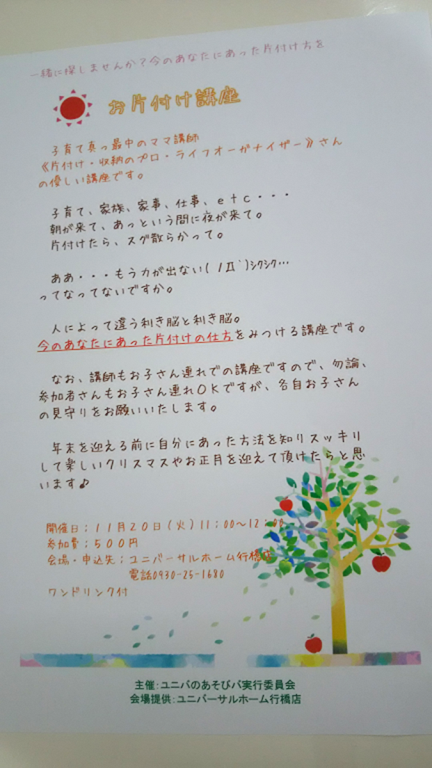 一緒に探しませんか？今のあなたにあった片付け方を
お片付け講座
子育て真っ最中のママ講師
《片付け・収納のプロ・ライフオーガナイザー》さん
の優しい講座です。
子育て、家族、家事、仕事、ｅｔｃ・・・
朝が来て、あっという間に夜が来て。
片付けたら、スグ散らかって。
ああ・・・もう力が出ない(ノД`)ｼｸｼｸ…
ってなってないですか。
人によって違う利き脳と利き脳。
今のあなたにあった片付けの仕方をみつける講座です。
なお、講師もお子さん連れでの講座ですので、勿論、
参加者さんもお子さん連れＯＫですが、各自お子さん
の見守りをお願いいたします。
年末を迎える前に自分にあった方法を知りスッキリ
して楽しいクリスマスやお正月を迎えて頂けたらと思
います♪
開催日；１１月２０日（火）１１：００～１２：００
参加費；５００円
会場・申込先；ユニバーサルホーム行橋店
電話0930-25-1680
ワンドリンク付
主催：ユニバのあそびバ実行委員会
会場提供：ユニバーサルホーム行橋店